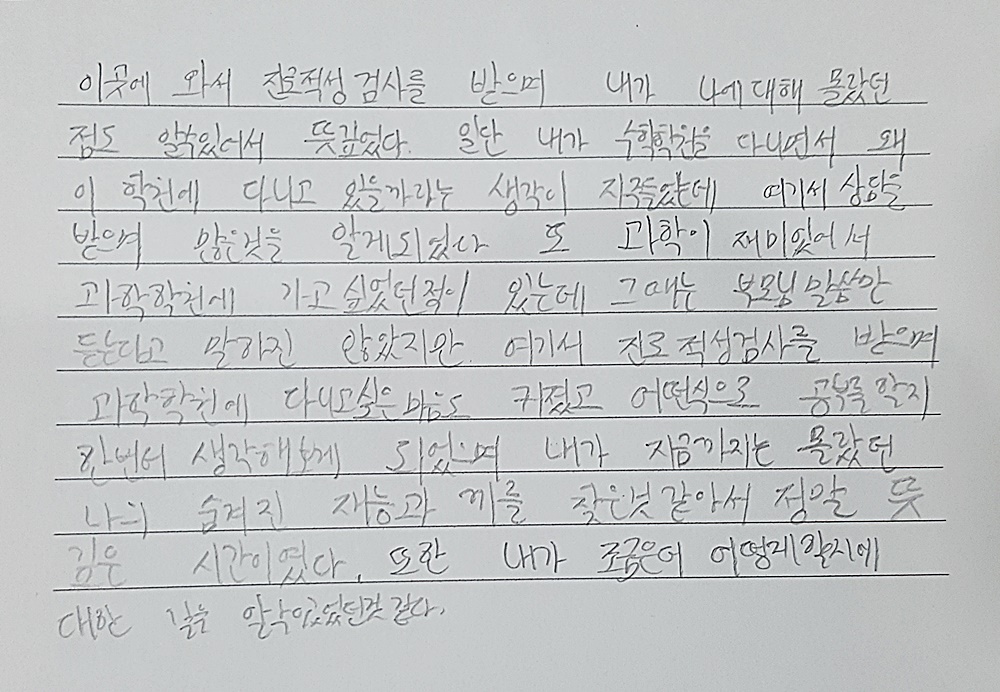 이곳에 와서 진로적성 검사를 받으며 내가 나에대해 몰랐던
점도 알수있어서 뜻깊었다. 일단 내가 수학학원을 다니면서 왜
이 학원에 다니고 있을까라는 생각이 자주들었는데 여기서 상담을
받으며 많은것을 알게되었다 또 과학이 재미있어서
과학학원에 가고싶었던적이 있는데 그때는 부모님말씀만
듣는다고 말하진 않았지만 여기서 진로적성검사를 받으며
과학학원에 다니고싶은마음도 커졌고 어떤식으로 공부를할지
한번더 생각해보게 되었으며 내가 지금까지는 몰랐던
나의 숨겨진 재능과 끼를 찾은것같아서 정말 뜻
깊은 시간이였다. 또한 내가 어떻게할지에
대한 알수있었던것 같다.